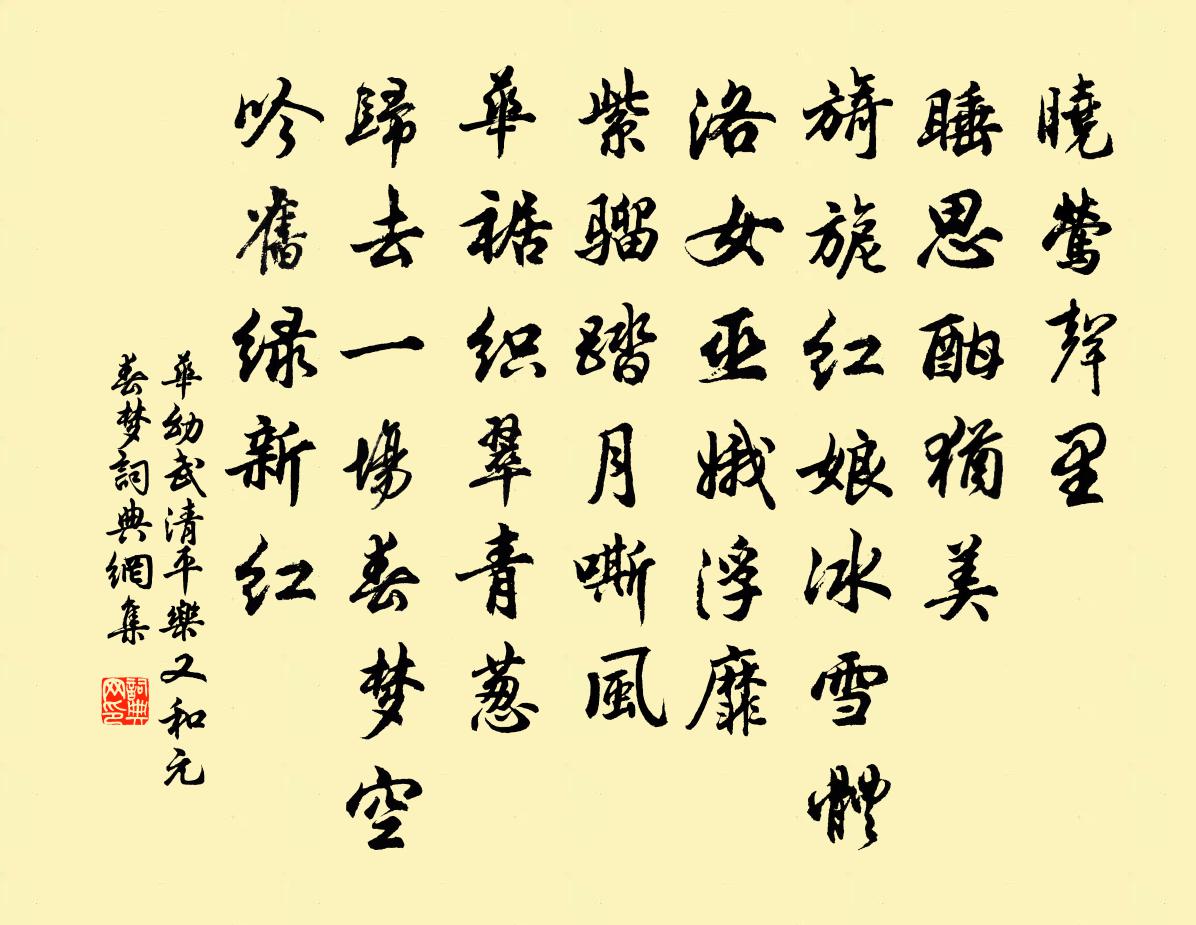 曉鶯聲里
睡思酣猶美
旖旎紅娘冰雪體
洛女巫娥浮靡
紫騮踏月嘶風
華裾织翠青葱
歸去一場春梦空
吟舊绿新紅
華幼武清平樂又和元
春梦詞典網集
詞典網印